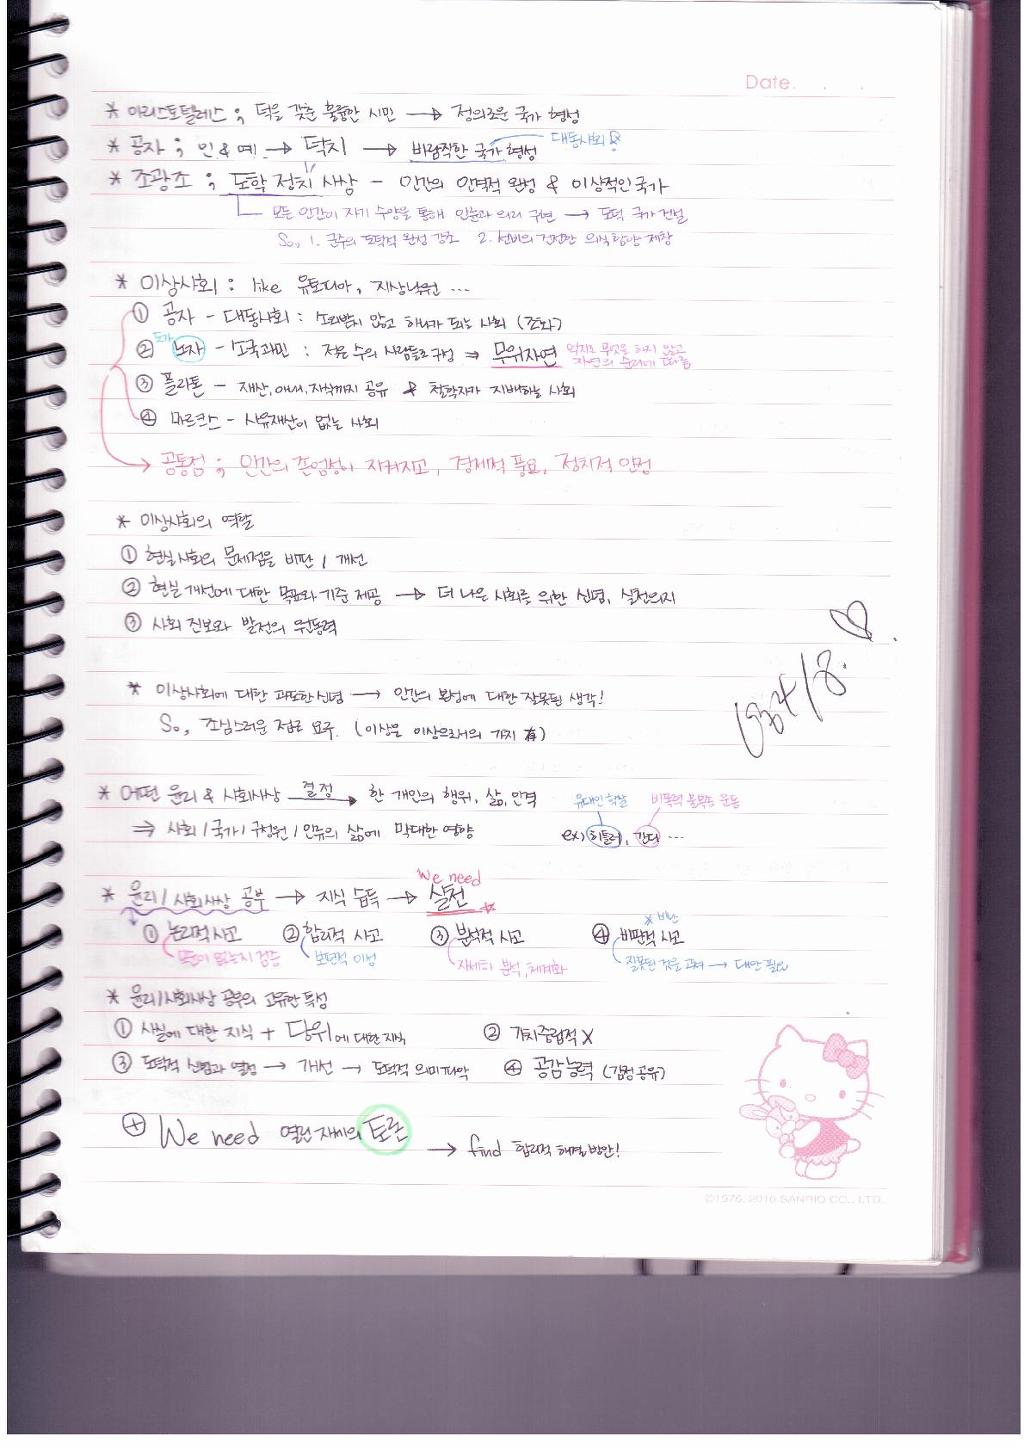 Date. . .
* 아리스토텔레스 ; 덕을 갖춘 훌륭한 시민 → 정의로운 국가 형성
* 공자 ; 인 & 예 → 덕치 → 바람직한 국가 형성 대동사회
* 조광조 ; 도학 정치 사상 - 인간의 인격적 완성 & 이상적인 국가
모든 인간이 자기 수양을 통해 인륜과 의리 구현 → 도덕 국가 건설
So, 1. 군주의 도덕적 완성 강조 2. 선비의 건전한 의식 함양 제창
* 이상사회 : like 유토피아, 지상낙원 ...
① 공자 - 대동사회 : 소외받지 않고 하나가 되는 사회 (조화)
② 도가 노자 - 소국과민 : 적은 수의 사람들로 구성 ⇒ 무위자연 억지로 무엇을 하지 않고
자연의 순리에 따름
③ 플라톤 - 재산, 아내, 자식까지 공유 & 철학자가 지배하는 사회
④ 마르크스 - 사유재산이 없는 사회
→ 공통점 ; 인간의 존엄성이 지켜지고, 경제적 풍요, 정치적 안정
* 이상사회의 역할
① 현실사회의 문제점을 비판 / 개선
② 현실 개선에 대한 목표와 기준 제공 → 더 나은 사회를 위한 신념, 실천의지
③ 사회 진보와 발전의 원동력
* 이상사회에 대한 과도한 신념 → 인간의 완성에 대한 잘못된 생각!
So, 조심스러운 접근 요구. (이상은 이상으로서의 가치 有)
* 어떤 윤리 & 사회사상 결정 → 한 개인의 행위, 삶, 인격 유대인 학살 비폭력 불복종 운동
⇒ 사회 / 국가 / 구성원 / 인류의 삶에 막대한 영향 ex) 히틀러, 간디 ...
We need
* 윤리 / 사회사상 공부 → 지식 습득 → 실천
① 논리적 사고 ② 합리적 사고 ③ 분석적 사고 ④ 비판적 사고 × 비난
모순이 없는지 검증 보편적 이성 자세히 분석, 체계화 잘못된 것을 고쳐 → 대안 필요
* 윤리/사회사상 공부의 고유한 특성
① 사실에 대한 지식 + 당위에 대한 지식 ② 가치중립적 X
③ 도덕적 신념과 열정 → 개선 → 도덕적 의미 파악 ④ 공감능력 (감정 공유)
⊕ We need 열린 자세의 토론
→ find 합리적 해결 방안!
©1976, 2010 SANRIO CO., LTD.